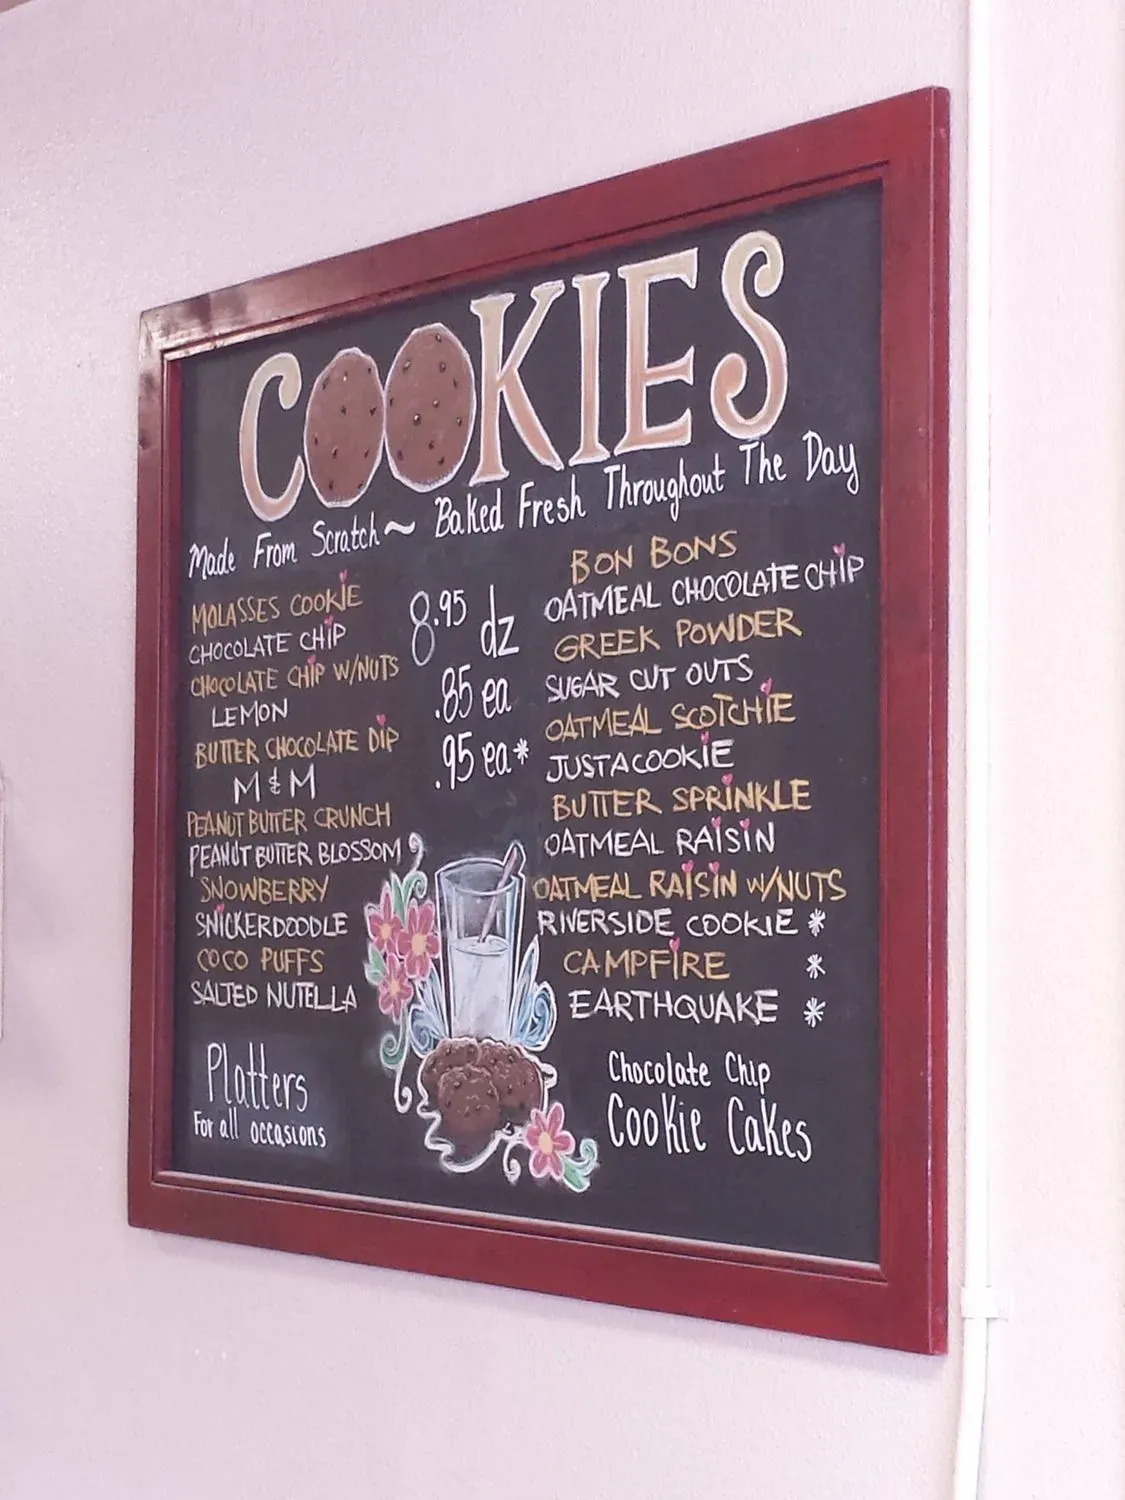 COOKIES
Made From Scratch~ Baked Fresh Throughout The Day
MOLASSES COOKIE
CHOCOLATE CHIP
CHOCOLATE CHIP W/NUTS
LEMON
BUTTER CHOCOLATE DIP
M & M
PEANUT BUTTER CRUNCH
PEANUT BUTTER BLOSSOM
SNOWBERRY
SNICKERDOODLE
COCO PUFFS
SALTED NUTELLA
8.95 dz
.85 ea
.95 ea*
BON BONS
OATMEAL CHOCOLATE CHIP
GREEK POWDER
SUGAR CUT OUTS
OATMEAL SCOTCHIE
JUSTACOOKIE
BUTTER SPRINKLE
OATMEAL RAISIN
OATMEAL RAISIN W/NUTS
RIVERSIDE COOKIE *
CAMPFIRE *
EARTHQUAKE *
Platters
For all occasions
Chocolate Chip
Cookie Cakes